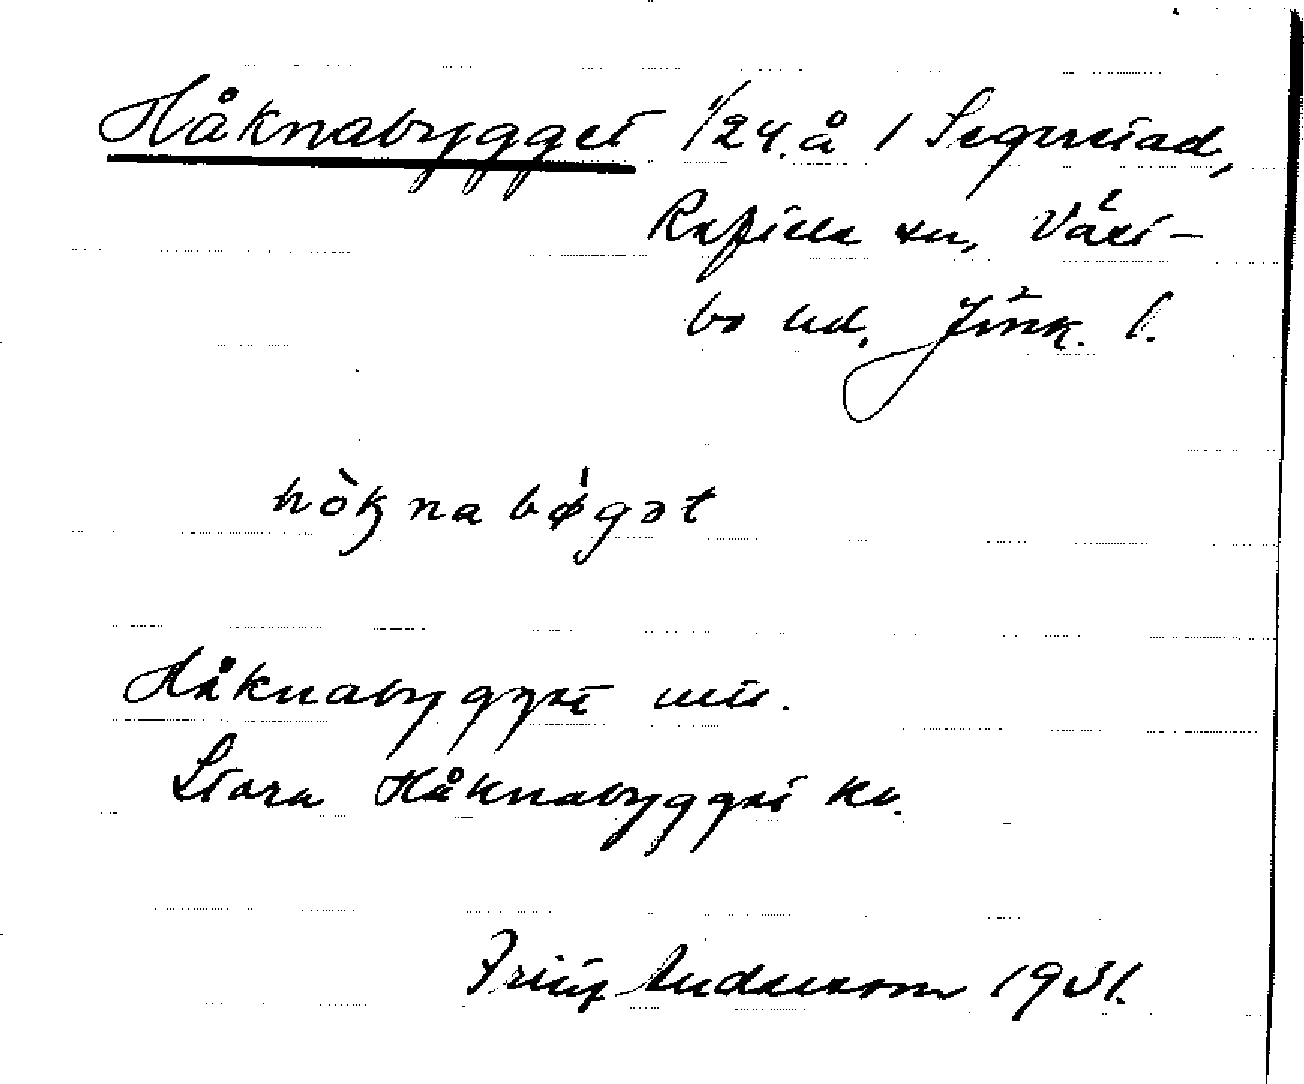 Håknabygget 1/24. å 1 Segerstad,
Reftele sn, Väst-
bo hd. Jönk. l.
hòkna bǿgət
Håknabygget
Stora Håknabygget
Fritz Andersson 1931.